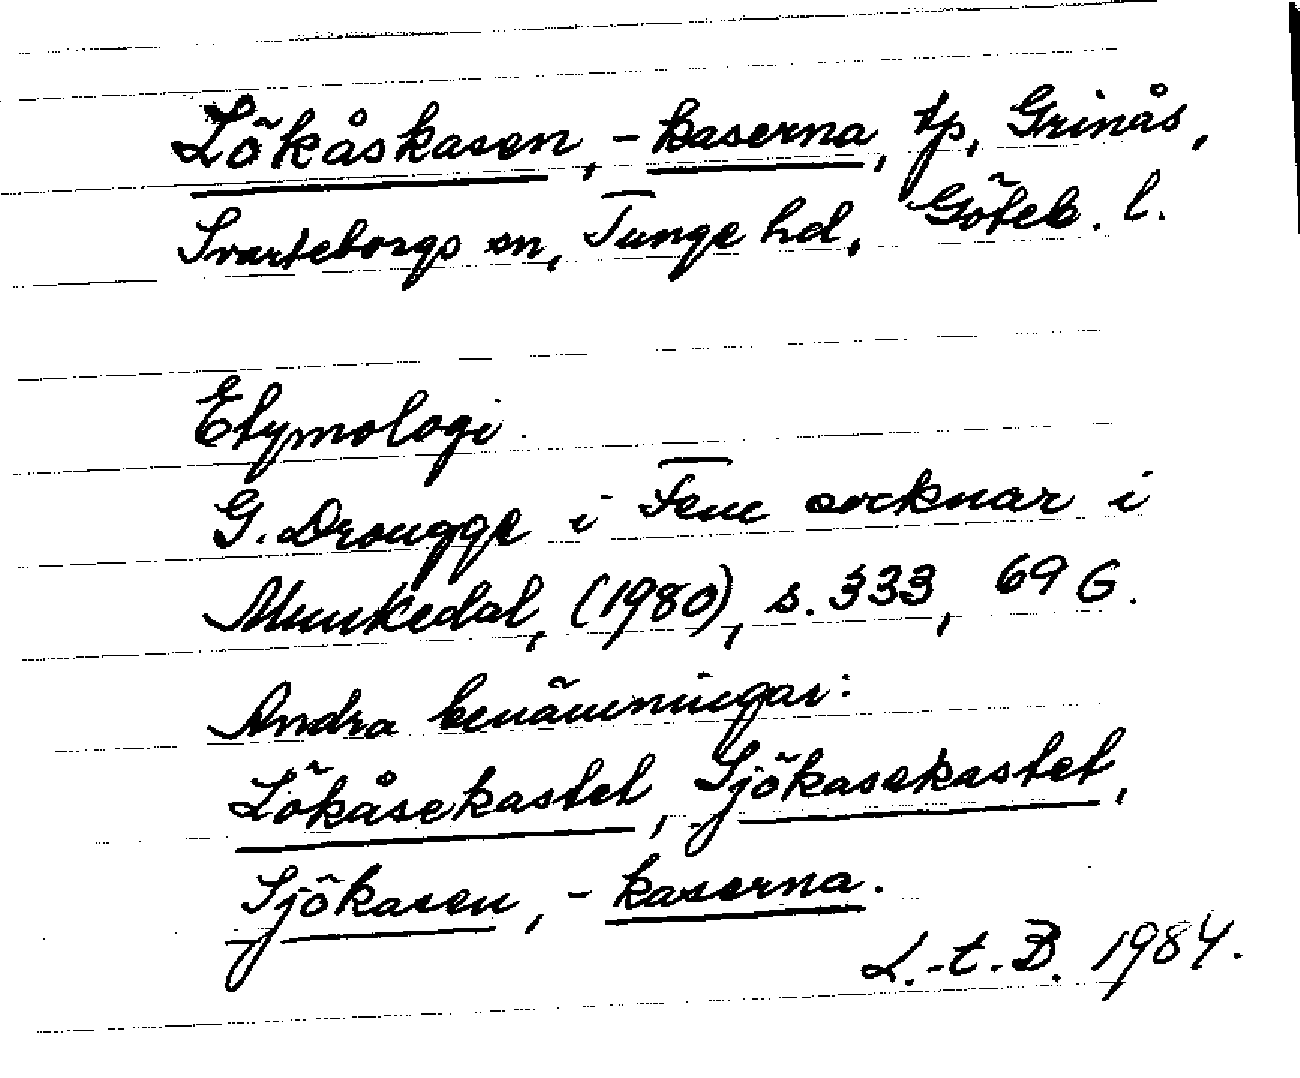 Lökåskasen, -kaserna, tp, Grinås,
Svarteborgs sn, Tunge hd, Göteb. l.
Etymologi.
G. Drougge i Fem socknar i
Munkedal, (1980), s. 333, 69 G.
Andra benämningar:
Lökåsekastet, Sjökasekastet,
Sjökasen, -kaserna.
L.-t. B. 1984.